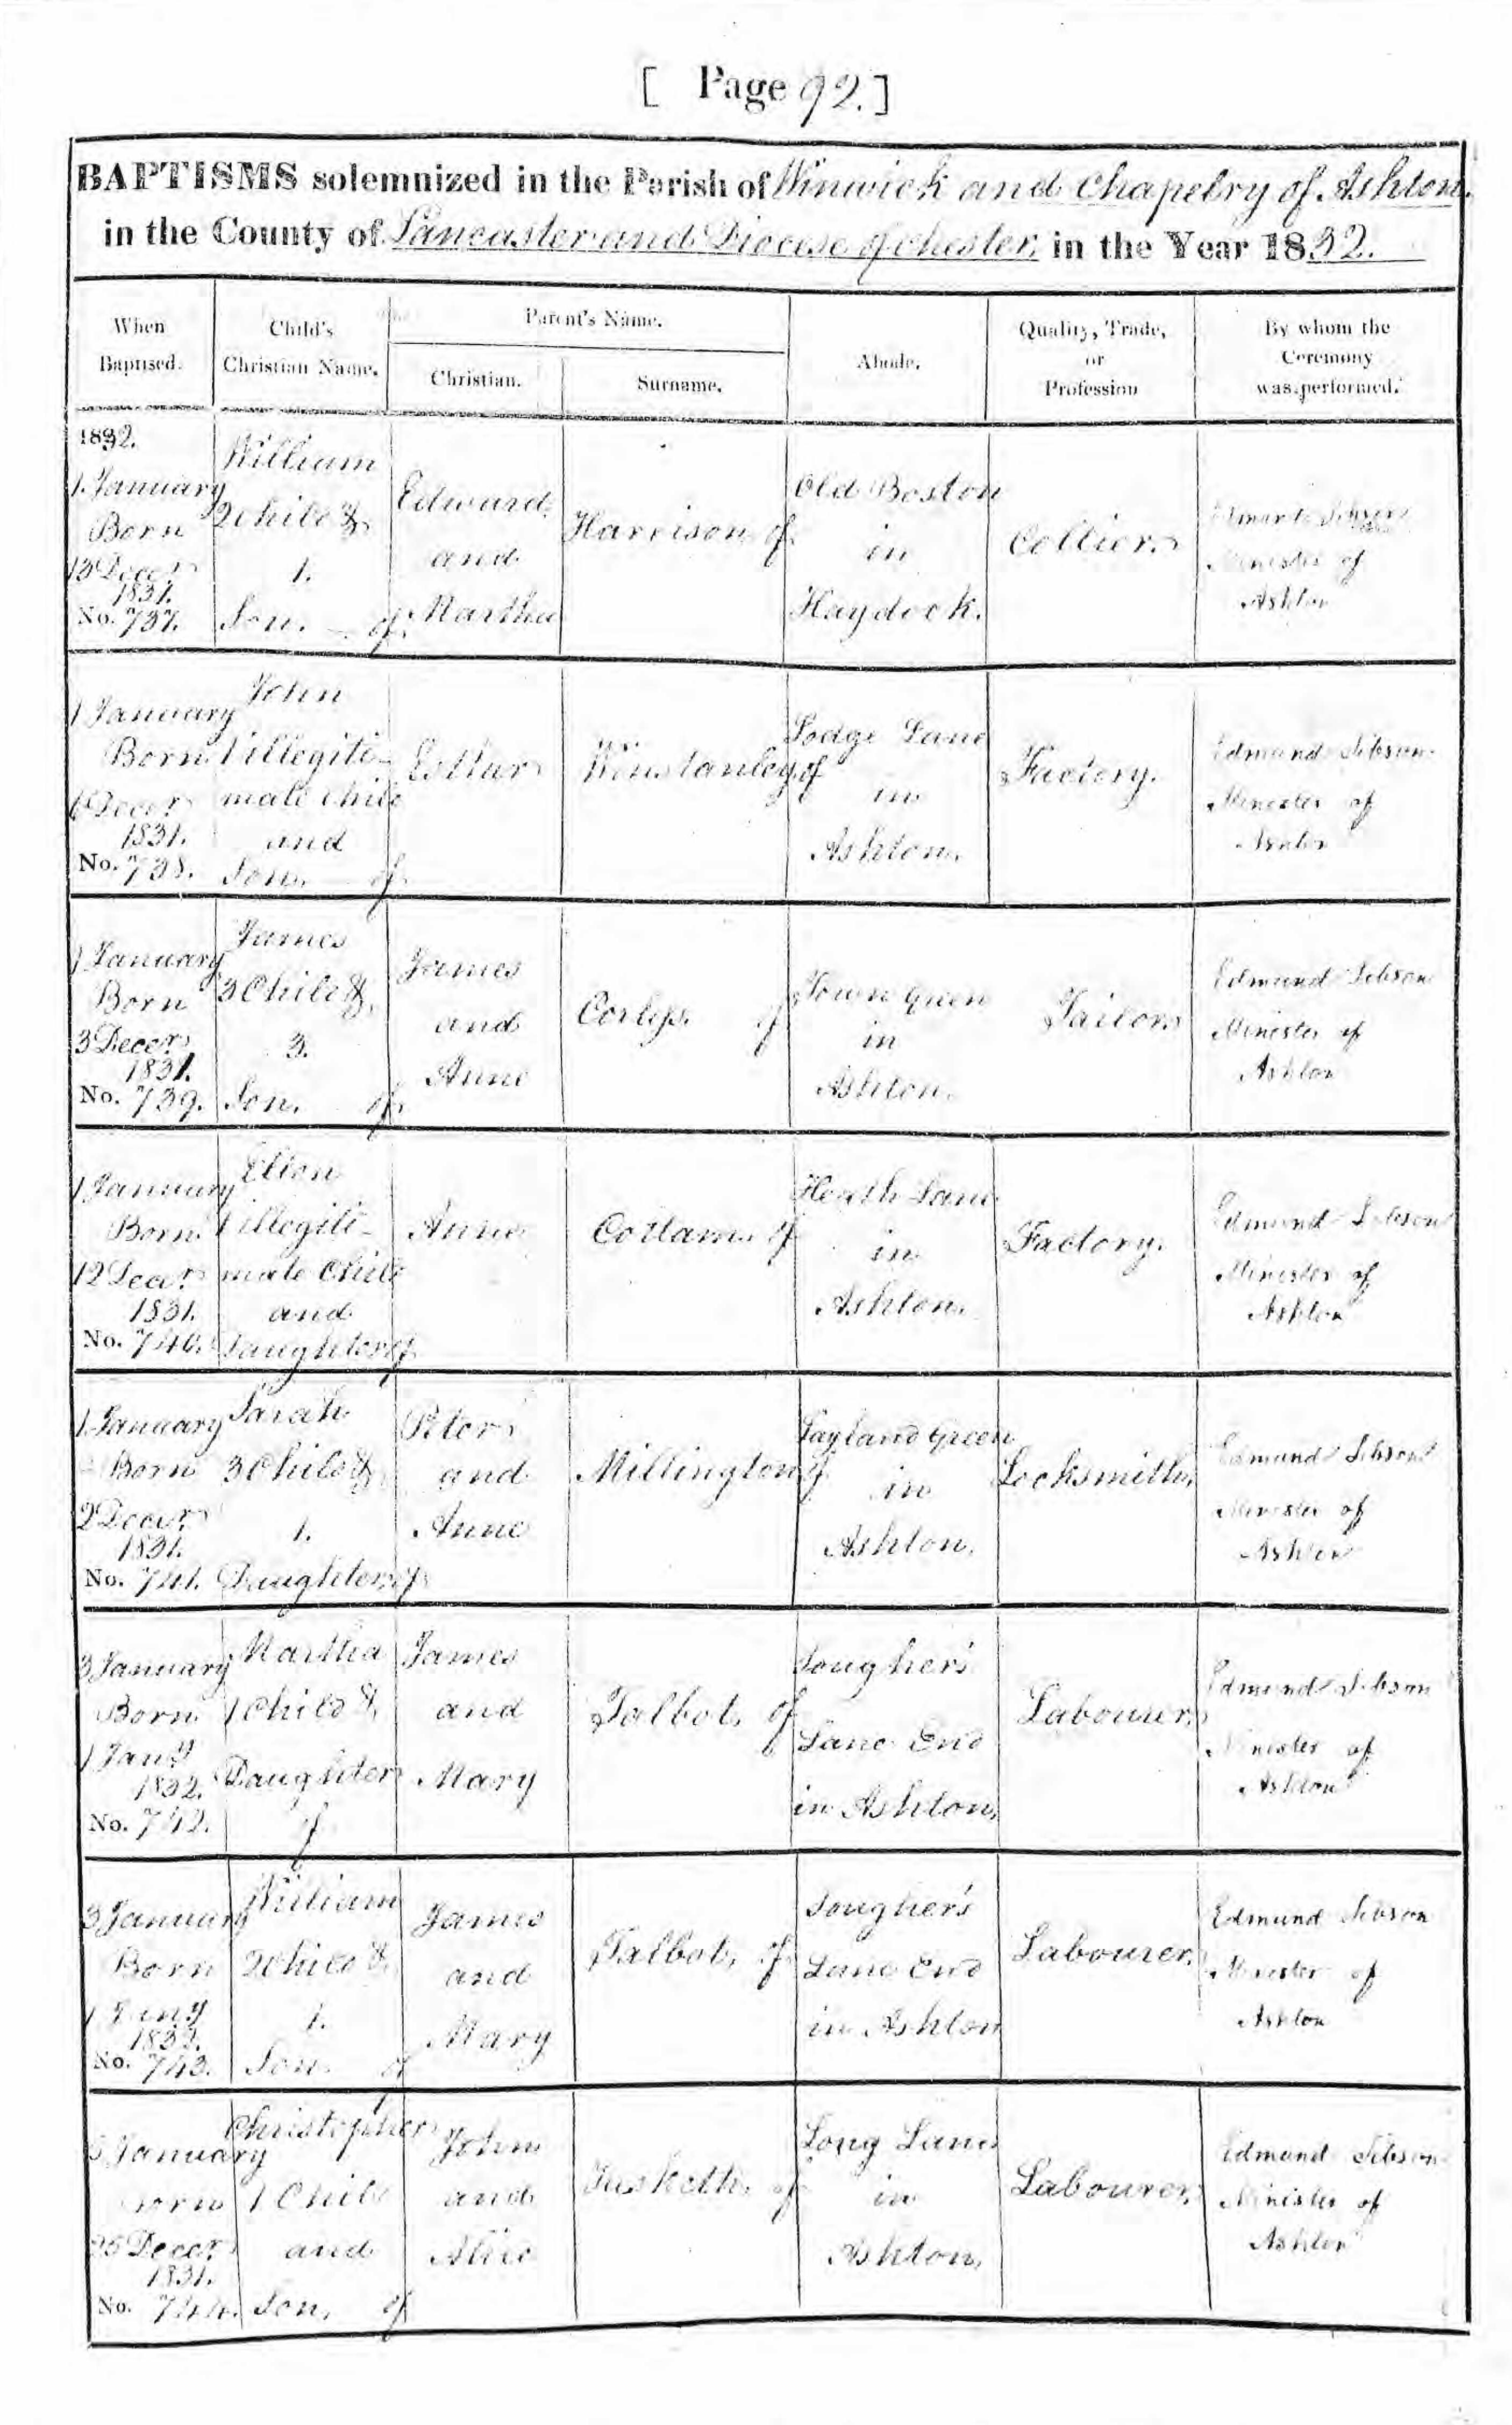 [ Page 92. ]
BAPTISMS solemnized in the Parish of Winwick and Chapelry of Ashton.
in the County of Lancaster and Diocese of Chester, in the Year 1832.
When Baptised.
Child's Christian Name.
Parent's Name.
Christian.
Surname.
Abode.
Quality, Trade, or Profession
By whom the Ceremony was performed.
1832.
1 January
Born
13 Decer.
1831.
No. 737.
William
2 Child &
1.
Son. of
Edward
and
Martha
Harrison of
Old Boston
in
Haydock.
Collier.
Edmund Sibson
Minister of
Ashton
1 January
Born
6 Decer.
1831.
No. 738.
John
1 illegiti-
mate Child
and
Son. of
Esther
Winstanley of
Lodge Lane
in
Ashton.
Factory.
Edmund Sibson
Minister of
Ashton
1 January
Born
3 Decer.
1831.
No. 739.
James
3 Child &
3.
Son. of
James
and
Anne
Corless. of
Town Green
in
Ashton.
Tailor.
Edmund Sibson
Minister of
Ashton
1 January
Born
12 Decer.
1831.
No. 740.
Ellen
1 illegiti-
mate Child
and
Daughter of
Anne
Cotlam. of
Heath Lane
in
Ashton.
Factory.
Edmund Sibson
Minister of
Ashton
1 January
Born
2 Decer.
1831.
No. 741.
Sarah
3 Child &
1.
Daughter of
Peter
and
Anne
Millington of
Layland Green
in
Ashton.
Locksmith.
Edmund Sibson
Minister of
Ashton
3 January
Born
1 Jany
1832.
No. 742.
Martha
1 Child &
Daughter
of
James
and
Mary
Talbot, of
Sougher's
Lane End
in Ashton.
Labourer.
Edmund Sibson
Minister of
Ashton
3 January
Born
1 Jany
1832.
No. 743.
William
2 Child &
1.
Son. of
James
and
Mary
Talbot, of
Sougher's
Lane End
in Ashton
Labourer.
Edmund Sibson
Minister of
Ashton
January
Born
25 Decer.
1831.
No. 744.
Christopher
1 Child
and
Son, of
John
and
Alice
of
Long Lane
in
Ashton.
Labourer.
Edmund Sibson
Minister of
Ashton